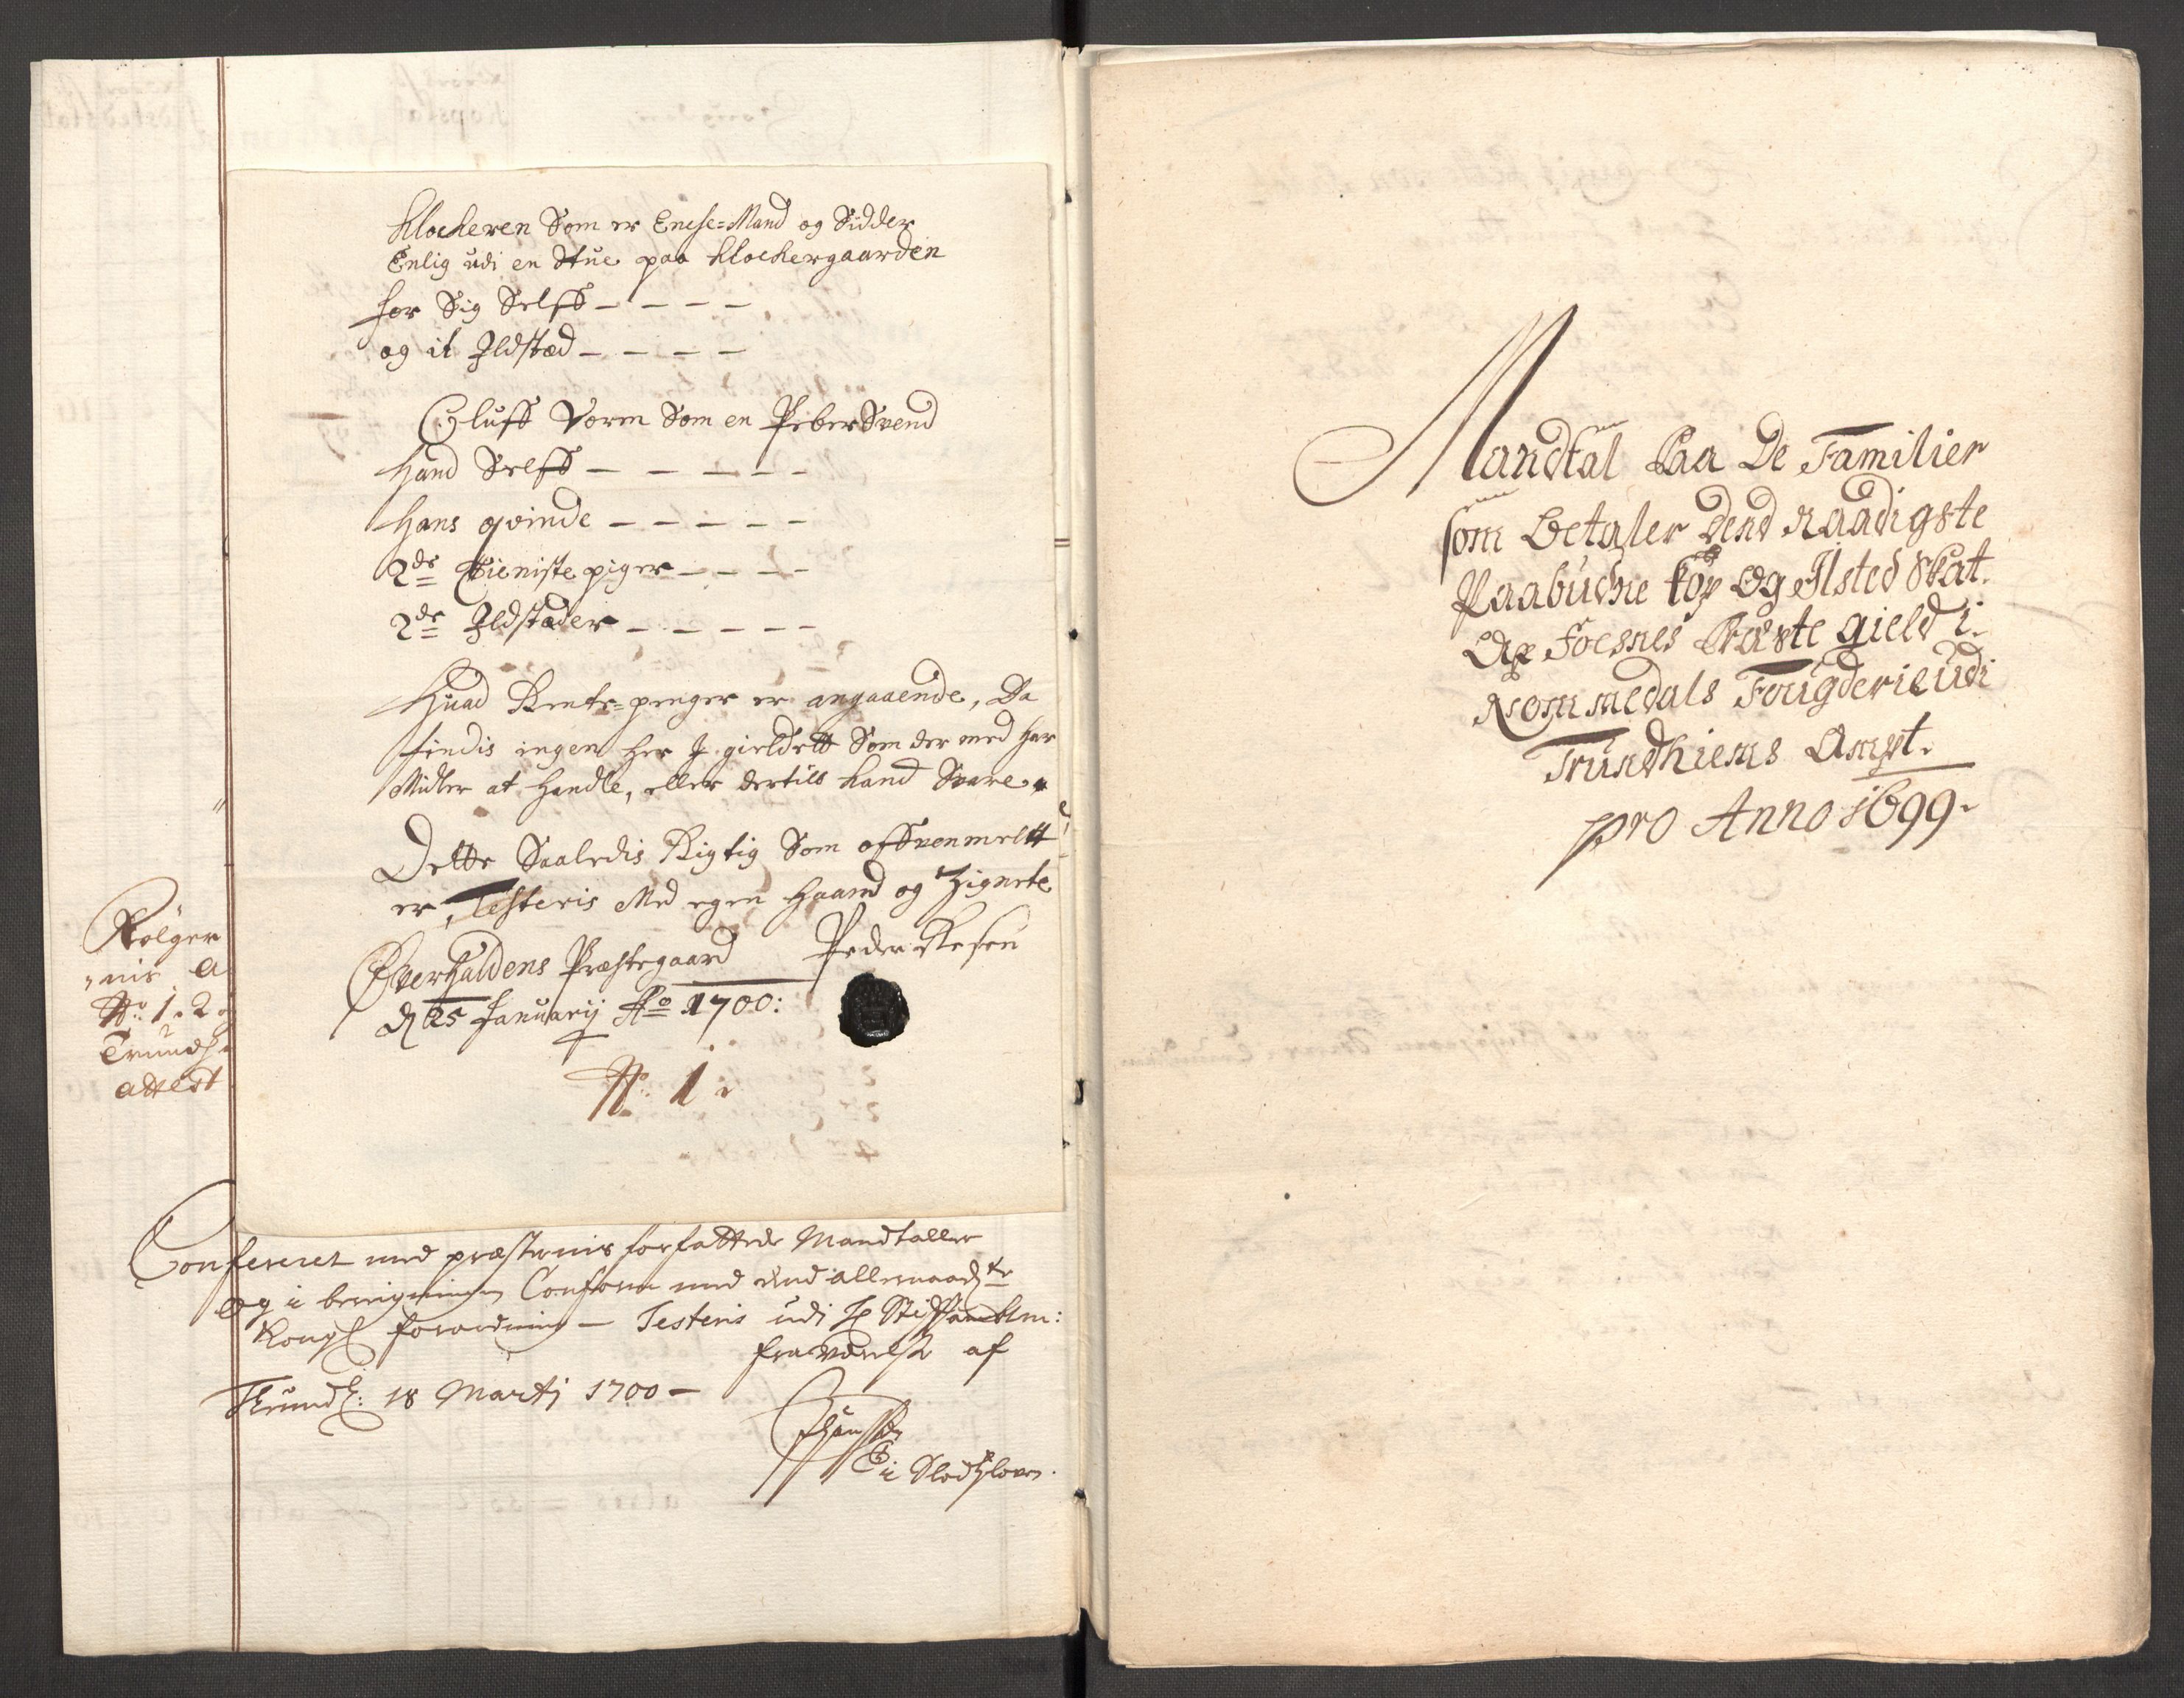 Klocheren Som er Enche=Mand og Sidder
Enlig udi en Stue paa Klochergaarden
for Sig Selff – – – –
og it Ildstæd – – – –
Oluff Vorm Som en PeberSvend
Hand Selff – – – – –
Hans qvinde – – – – –
2de Tieniste piger – – – –
2de Ildstæder – – – – –
Huad Rente=penger er angaaende, Da
findis ingen her J gieldett Som der med har
Midler at Handle, eller dertill kand Svare.
Dette Saaledis Rigtig Som offvenmeltt
er, Testeris Med egen Haand og Zignete
Overhaldens Præstegaard Peder Resen
d 25 Januarij Ao 1700:
No: 1.
Følger
nis a
No: 1. 2
Trundh
attest
Confereret med præsternis forfattede Mandtaller
og i beregningen Conform med dend allernaadste
Kongl forordning – Testeris udi H Stiftamtm:
fraværelse af
Trundh: 18 Martj 1700 –
i Slodtzloven.
Mandtal Paa De Familier
som Betaler Dend Naadigste
Paabudne Kop Og Ilsted Skat.
Af Foesnes Præste gield i
Nommedals Fougderie udi
Trundhiems Ampt.
pro Anno 1699.